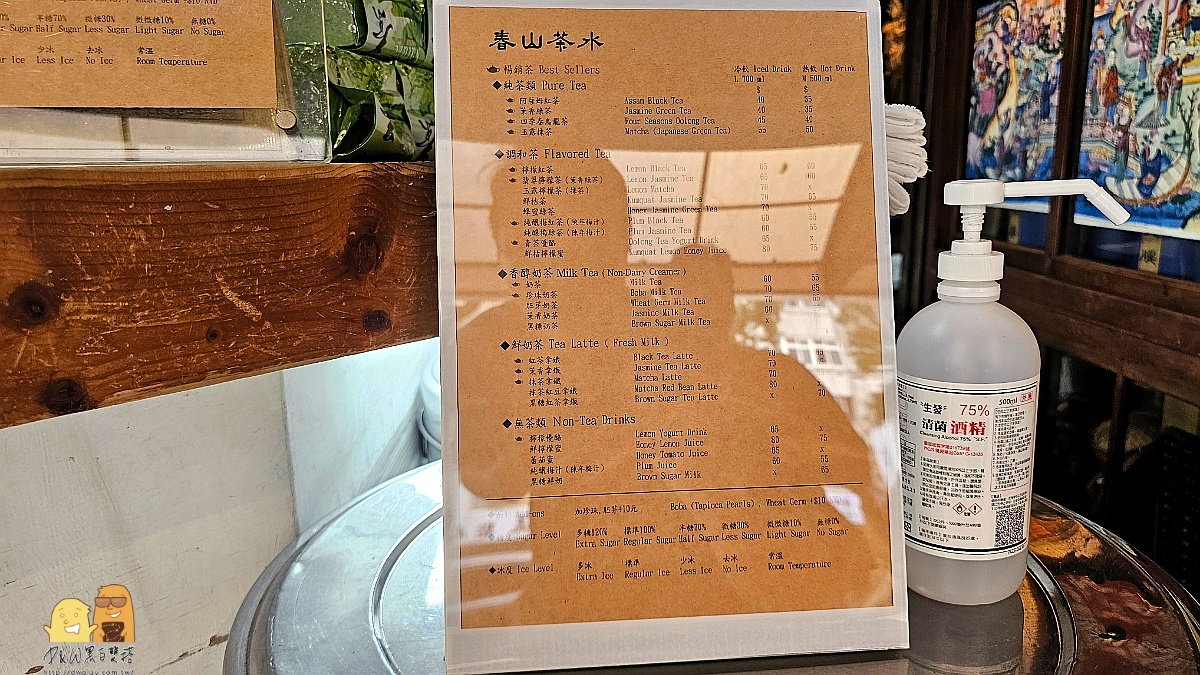 半糖70% 微糖30% 微微糖10% 無糖0%
Sugar Half Sugar Less Sugar Light Sugar No Sugar
少冰 去冰 常溫
Ice Less Ice No Ice Room Temperature
春山茶水
暢銷茶 Best Sellers 冷飲 Iced Drink 熱飲 Hot Drink
L 700 ml M 500 ml
◆純茶類 Pure Tea $ $
阿薩姆紅茶 Assam Black Tea 40 35
茉香綠茶 Jasmine Green Tea 40 35
四季春烏龍茶 Four Seasons Oolong Tea 45 40
玉露抹茶 Matcha (Japanese Green Tea) 55 50
◆調和茶 Flavored Tea
檸檬紅茶 Lemon Black Tea 65 60
翡翠檸檬茶(茉香綠茶) Lemon Jasmine Tea 65 60
玉露檸檬茶(抹茶) Lemon Matcha 70 x
鮮桔茶 Kumquat Jasmine Tea 70 55
蜂蜜綠茶 Honey Jasmine Green Tea 70 x
純釀梅紅茶(陳年梅汁) Plum Black Tea 60 55
純釀梅綠茶(陳年梅汁) Plum Jasmine Tea 60 55
青茶優酪 Oolong Tea Yogurt Drink 65 x
鮮桔檸檬蜜 Kumquat Lemon Honey Juice 80 75
◆香醇奶茶 Milk Tea (Non-Dairy Creamer)
奶茶 Milk Tea 60 55
珍珠奶茶 Boba Milk Tea 70 65
胚芽奶茶 Wheat Germ Milk Tea 70 65
茉香奶茶 Jasmine Milk Tea 60 55
黑糖奶茶 Brown Sugar Milk Tea x
◆鮮奶茶 Tea Latte ( Fresh Milk )
紅茶拿鐵 Black Tea Latte 70 65
茉香拿鐵 Jasmine Tea Latte 70
抹茶拿鐵 Matcha Latte 70
抹茶紅豆拿鐵 Matcha Red Bean Latte 80 x
黑糖紅茶拿鐵 Brown Sugar Tea Latte x 70
◆無茶類 Non-Tea Drinks
檸檬優酪 Lemon Yogurt Drink 65 x
鮮檸檬蜜 Honey Lemon Juice 80 75
蕃茄蜜 Honey Tomato Juice 65 x
純釀梅汁(陳年梅汁) Plum Juice 60 55
黑糖鮮奶 Brown Sugar Milk x 65
加珍珠,胚芽+10元 Boba (Tapioca Pearls), Wheat Germ +$10
Sugar Level 多糖120% 標準100% 半糖70% 微糖30% 微微糖10% 無糖0%
Extra Sugar Regular Sugar Half Sugar Less Sugar Light Sugar No Sugar
◆冰度 Ice Level 多冰 標準 少冰 去冰 常溫
Extra Ice Regular Ice Less Ice No Ice Room Temperature
500ml
生發 75%
清菌 酒精
Cleansing Alcohol 75%
黑白雙搭